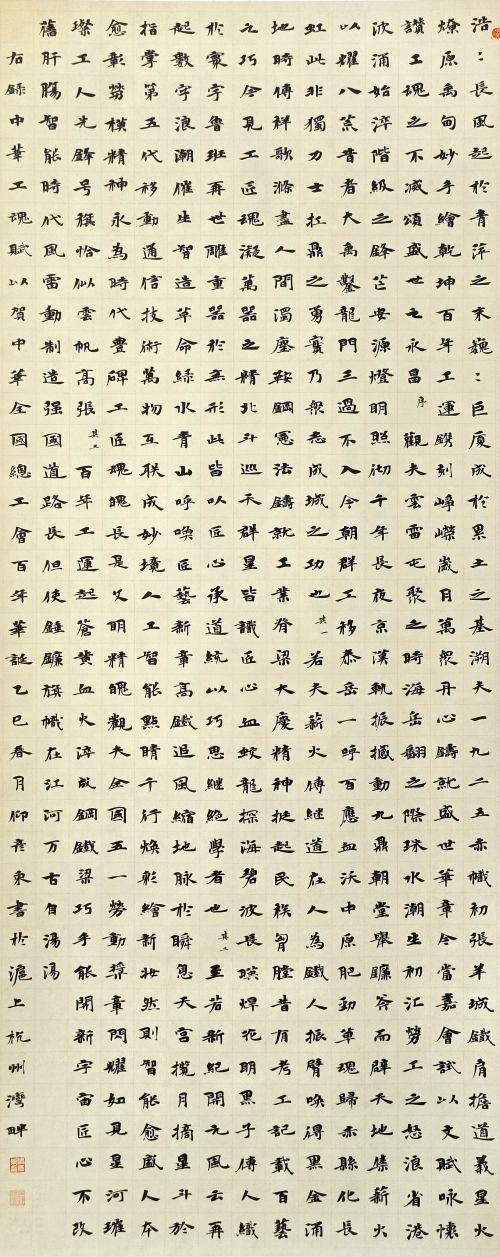 浩﹕長風起於青萍之末巍﹕巨廈成於累土之基溯夫一九二五赤幟初張羊城鐵肩擔道義星火
燎原禹甸妙手繪乾坤百年工運鐫刻崢嶸歲月萬眾丹心鑄就盛世華章今當嘉會試以文賦咏懷
讚工魂之不滅頌盛世之永昌序觀夫雲雷屯聚之時海岳翻之際珠水潮生初汇勞工之怒浪省港
波涌始淬階級之鋒芒安源燈明照徹千年長夜京漢軌振撼動九鼎朝堂舉鐮答而闢天地集薪火
以耀八荒昔者大禹鑿龍門三過不入今朝群工移泰岳一呼百應血沃中原肥勁草魂歸赤縣化長
虹此非獨力士扛鼎之勇實乃眾志成城之功也其一若夫薪火傳繼道在人為鐵人振臂喚得黑金涌
地時傳祥歌滌盡人間濁塵鞍鋼憲法鑄就工業脊梁大慶精神挺起民族胸膛昔有考工記載百藝
之巧今見工匠魂凝萬器之精北斗巡天群星皆識匠心血蛟龍探海碧波長暎焊花明黑子傳人織
於寰宇魯班再世雕重器於無形此皆以匠心承道統以巧思繼絕學者也其二至若新紀開元風云再
起數字浪潮催生智造革命綠水青山呼喚匠藝新章高鐵追風縮地脉於瞬息天宮攬月摘星斗於
指掌第五代移動通信技術萬物互聯成妙境人工智能點睛千行煥彩繪新妝然則智能愈盛人本
愈彰勞模精神永為時代豊碑工匠魂魄長是文明精魄觀夫全國五一勞動獎章閃耀如見星河璀
璨工人先鋒号旗恰似雲帆高張其三百年工運起蒼黃血火淬成鋼鐵梁巧手能開新宇宙匠心不改
舊肝腸智能時代風雷動制造强國道路長但使錘鐮旗幟在江河万古自湯湯
右錄中華工魂賦以賀中華全國總工會百年華誕乙巳春月仰彥東書於滬上杭州灣畔